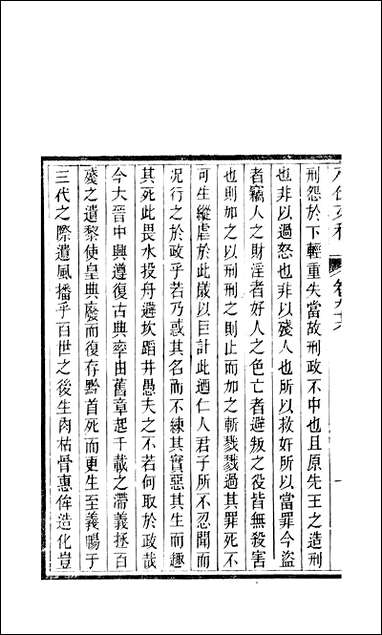 刑怨於下輕重失當故刑政不中也且原先王之造刑
也非以過怒也非以殘人也所以救奸所以當罪今盜
者竊人之財淫者好人之色亡者避叛之役皆無殺害
也則加之以刑刑之則止而加之斬戮戮過其罪死不
可生縱虐於此歲以巨計此廼仁人君子所不忍聞而
况行之於政乎若乃惑其名而不練其實惡其生而趣
其死此畏水投舟避坎蹈井愚夫之不若何取於政哉
今大晉中興遵復古典率由舊章起千載之滯義拯百
殘之遺黎使皇典廢而復存黔首死而更生至義暢于
三代之際遺風播乎百世之後生肉枯骨惠侔造化豈